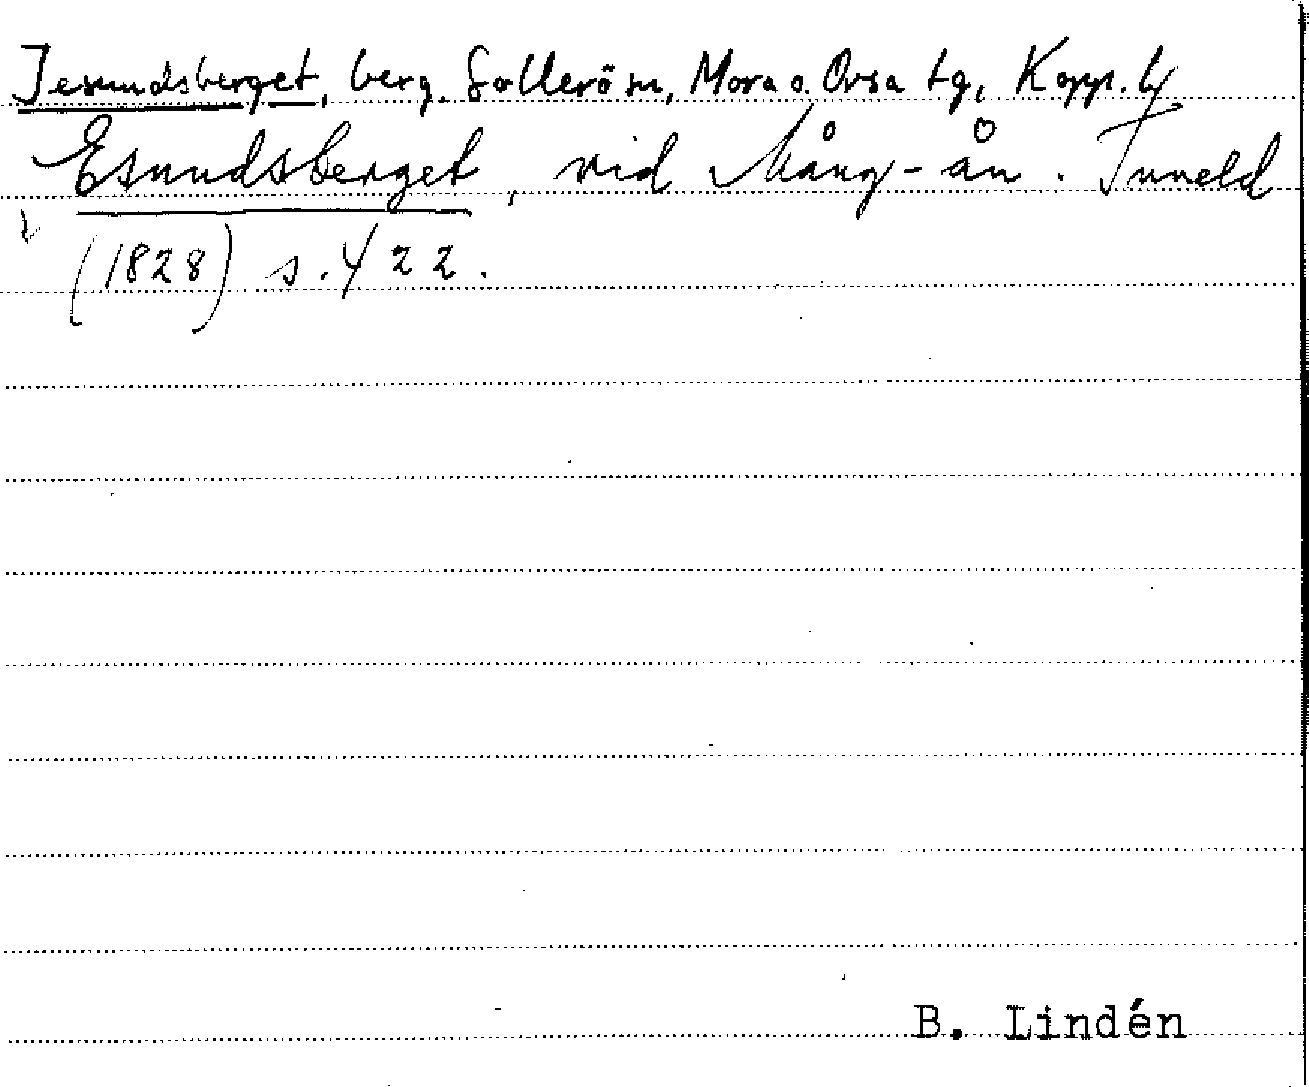 Jesundsberget, berg. Sollerö sn, Mora o. Orsa tg, Kopp. L
Esundsberget, vid Mång-ån. Tuneld
(1828) s. 422.
B. Lindén